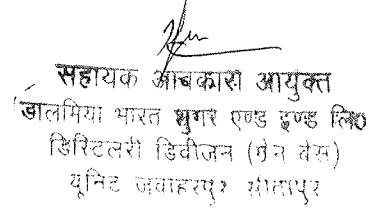 सहायक आबकारी आयुक्त
डालमिया भारत शुगर एण्ड इण्ड लि०
डिस्टिलरी डिवीजन (ग्रेन बेस)
यूनिट जवाहरपुर सीतापुर